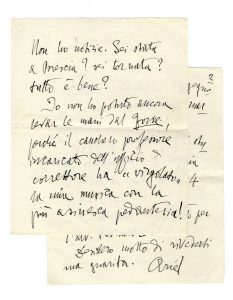 Non ho notizie. Sei stata
a Brescia? sei tornata?
tutto è bene?
Io non ho potuto ancora
levar le mani dal Forse,
perché il candido professore
incaricato dell'ufficio di
correttore ha "virgolato"
la mia musica con la
più asinesca pedanteria!
per
Desidero molto di rivederti
ma guarita. Ariel